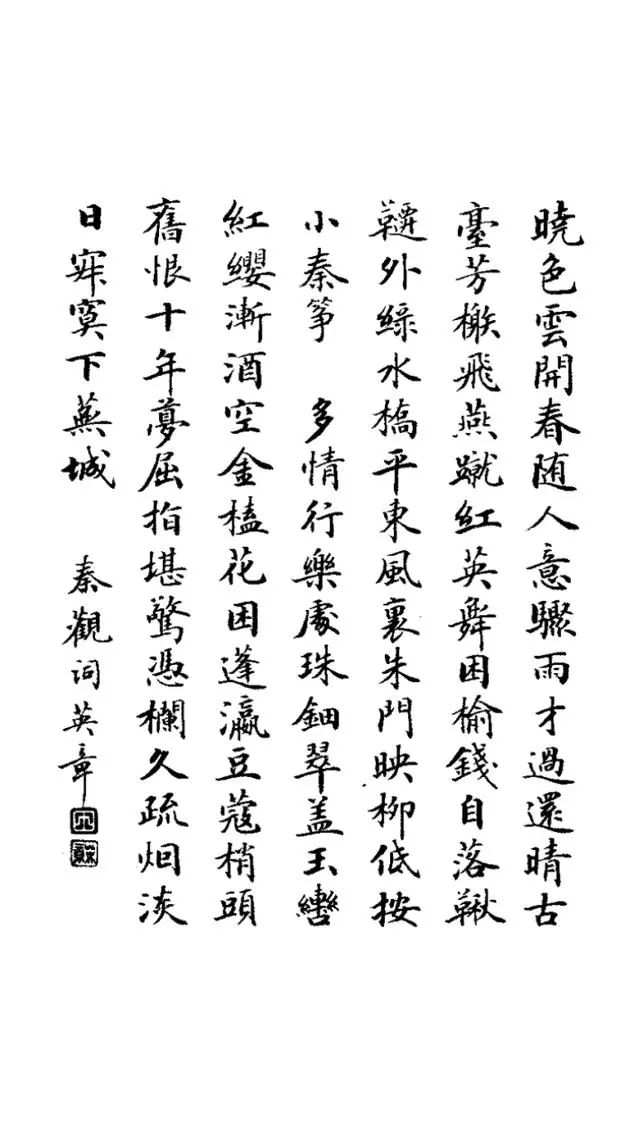 曉色雲開春随人意驟雨才過還晴古
臺芳榭飛燕蹴紅英舞困榆錢自落鞦
韆外綠水橋平東風裏朱門映柳低按
小秦筝 多情行樂處珠鈿翠盖玉轡
紅纓漸酒空金榼花困蓬瀛豆蔻梢頭
舊恨十年夢屈指堪驚憑欄久疏烟淡
日寂寞下蕪城 秦觀詞英章